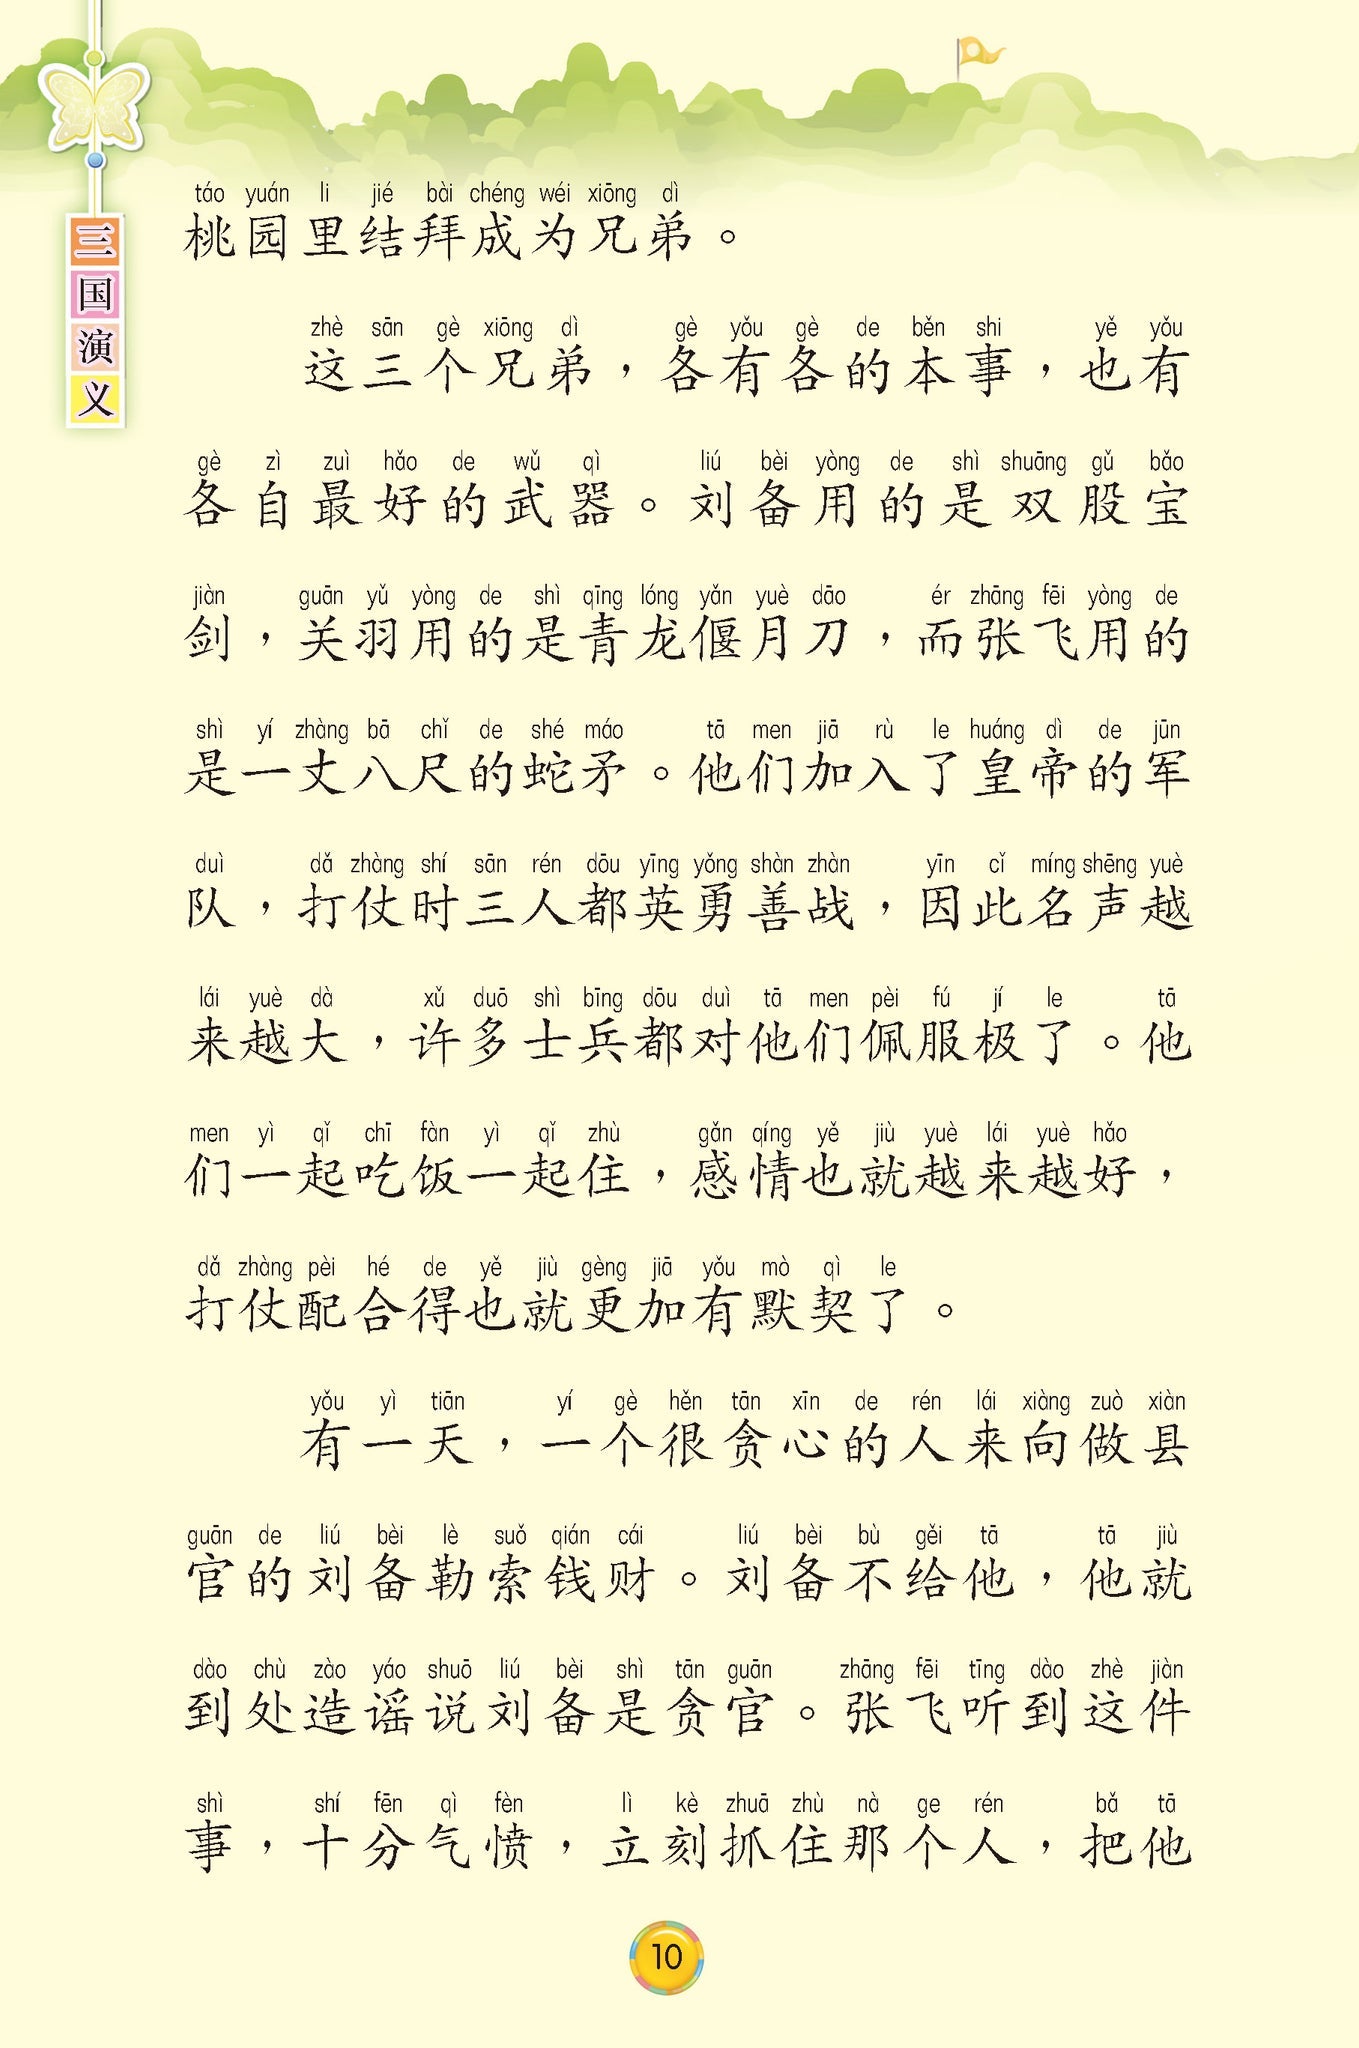 三国演义
táo yuán li jié bài chéng wéi xiōng dì
桃园里结拜成为兄弟。
zhè sān gè xiōng dì gè yǒu gè de běn shi yě yǒu
这三个兄弟，各有各的本事，也有
gè zì zuì hǎo de wǔ qì liú bèi yòng de shì shuāng gǔ bǎo
各自最好的武器。刘备用的是双股宝
jiàn guān yǔ yòng de shì qīng lóng yǎn yuè dāo ér zhāng fēi yòng de
剑，关羽用的是青龙偃月刀，而张飞用的
shì yí zhàng bā chǐ de shé máo tā men jiā rù le huáng dì de jūn
是一丈八尺的蛇矛。他们加入了皇帝的军
duì dǎ zhàng shí sān rén dōu yīng yǒng shàn zhàn yīn cǐ míng shēng yuè
队，打仗时三人都英勇善战，因此名声越
lái yuè dà xǔ duō shì bīng dōu duì tā men pèi fú jí le tā
来越大，许多士兵都对他们佩服极了。他
men yì qǐ chī fàn yì qǐ zhù gǎn qíng yě jiù yuè lái yuè hǎo
们一起吃饭一起住，感情也就越来越好，
dǎ zhàng pèi hé de yě jiù gèng jiā yǒu mò qì le
打仗配合得也就更加有默契了。
yǒu yì tiān yí gè hěn tān xīn de rén lái xiàng zuò xiàn
有一天，一个很贪心的人来向做县
guān de liú bèi lè suǒ qián cái liú bèi bù gěi tā tā jiù
官的刘备勒索钱财。刘备不给他，他就
dào chù zào yáo shuō liú bèi shì tān guān zhāng fēi tīng dào zhè jiàn
到处造谣说刘备是贪官。张飞听到这件
shì shí fēn qì fèn lì kè zhuā zhù nà ge rén bǎ tā
事，十分气愤，立刻抓住那个人，把他
10